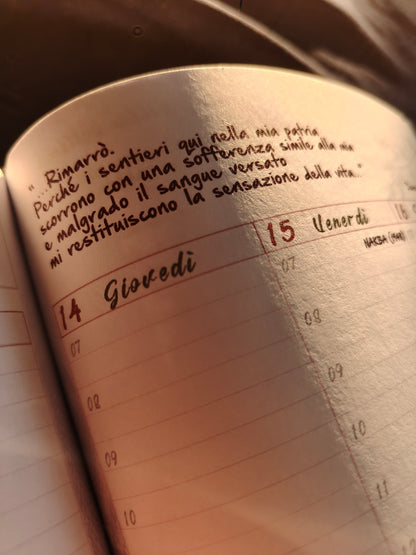 "...Rimarrò.
Perché i sentieri qui nella mia patria
scorrono con una sofferenza simile alla mia
e malgrado il sangue versato
mi restituiscono la sensazione della vita..."
14 Giovedì
15 Venerdì
16
NAKBA
07
08
09
10
07
08
09
10
11